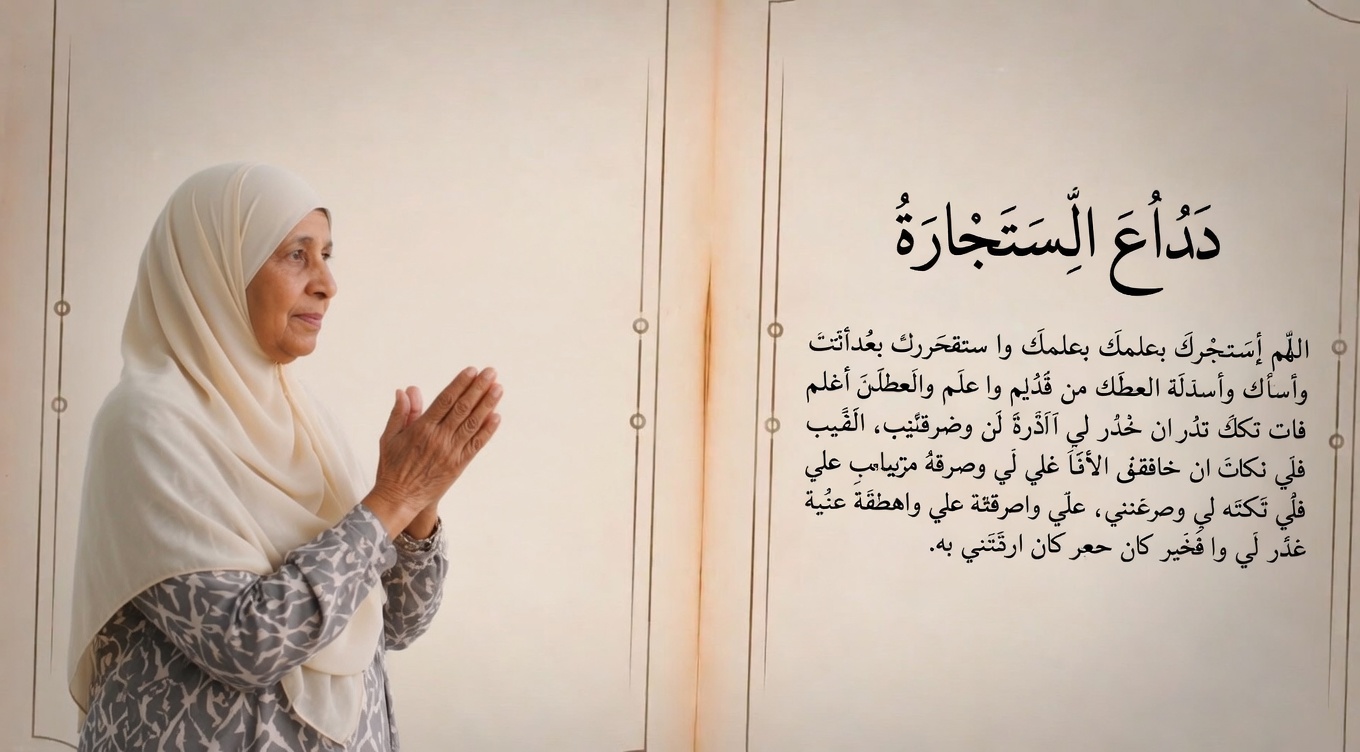 دَدُاُعَ الِّسَتَجْارَةُ
اللهّم أِسَتجْركَ بعلمكَ بعلمكَ وا ستقحَرركَّ بعُدأتْتتَ
وأسأك وأسذلَة العطَك من قَدُيم وا علَم والَعطلَنَ أغلم
فات تككَّ تدُر ان خُدُر لي اَلَذَّرةَ لَن وضرقنَّيْب، الَفًيب
فلَي نكاتَ ان خافقنْى الأفَاَ غلي لَي وصرقهُ مرْبيامبِ علي
فلُي تَكتَه لي وصرعَنني، علّي واصرقتّة علي واهطقَة عنُية
غدَّر لَي وا فَخَير كان حعر كان ارتَتَني به.